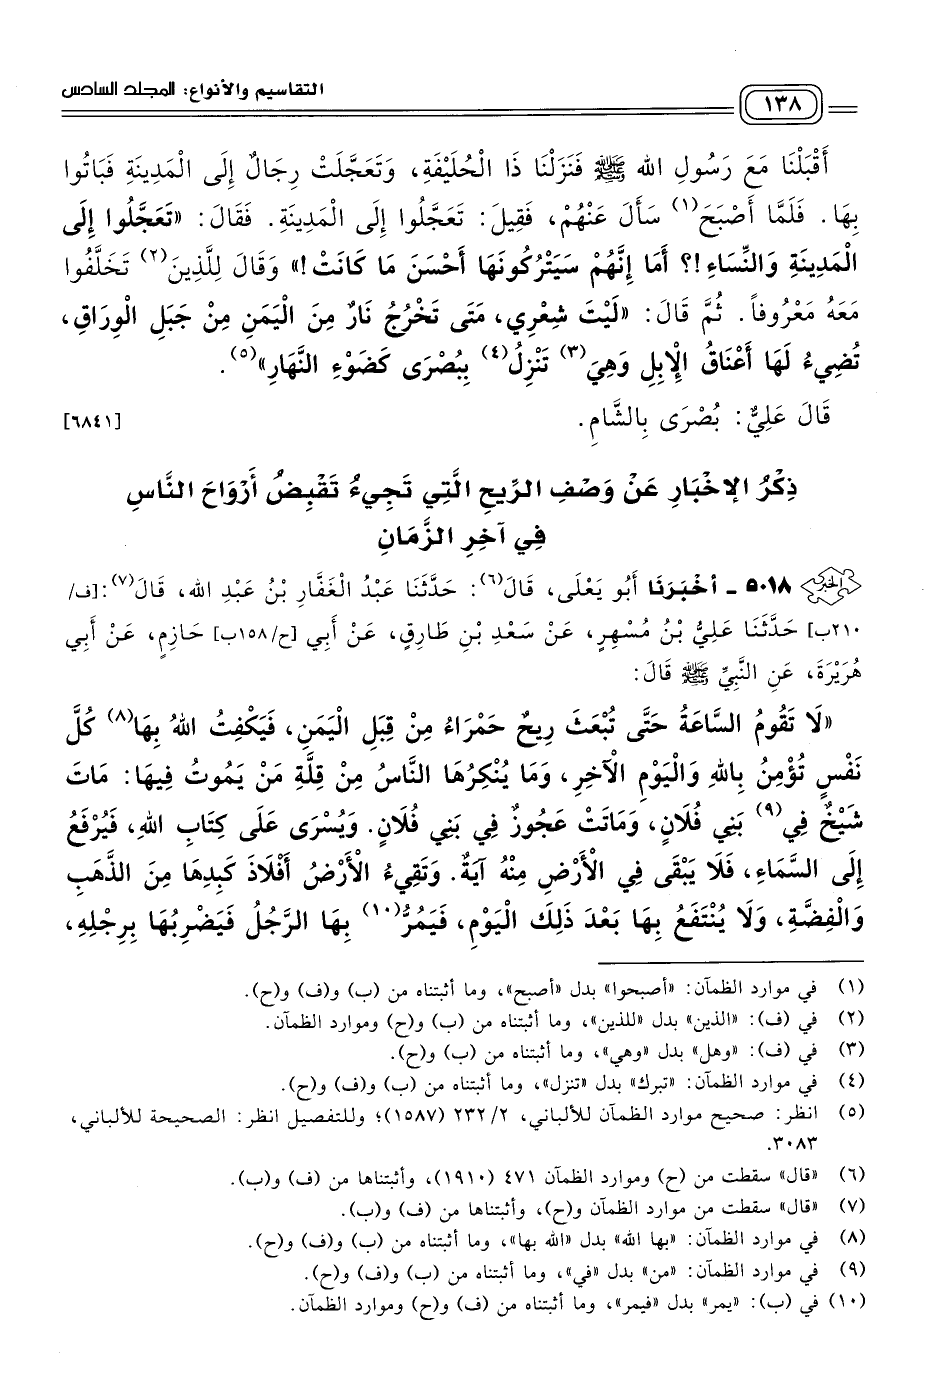 ١٣٨ التقاسيم والأنواع: المجلد السادس
أَقْبَلْنَا مَعَ رَسُولِ الله ﷺ فَنَزَلْنَا ذَا الْحُلَيْفَةِ، وَتَعَجَّلَتْ رِجَالٌ إِلَى الْمَدِينَةِ فَبَاتُوا
بِهَا. فَلَمَّا أَصْبَحَ(١) سَأَلَ عَنْهُمْ، فَقِيلَ: تَعَجَّلُوا إِلَى الْمَدِينَةِ. فَقَالَ: «تَعَجَّلُوا إِلَى
الْمَدِينَةِ وَالنِّسَاءِ!؟ أَمَا إِنَّهُمْ سَيَتْرُكُونَهَا أَحْسَنَ مَا كَانَتْ!» وَقَالَ لِلَّذِينَ(٢) تَخَلَّفُوا
مَعَهُ مَعْرُوفاً. ثُمَّ قَالَ: «لَيْتَ شِعْرِي، مَتَى تَخْرُجُ نَارٌ مِنَ الْيَمَنِ مِنْ جَبَلِ الْوِرَاقِ،
تُضِيءُ لَهَا أَعْنَاقُ الْإِبِلِ وَهِيَ(٣) تَنْزِلُ(٤) بِبُصْرَى كَضَوْءِ النَّهَارِ»(٥).
قَالَ عَلِيٌّ: بُصْرَى بِالشَّامِ. [٦٨٤١]
ذِكْرُ الإخْبَارِ عَنْ وَصْفِ الرِّيحِ الَّتِي تَجِيءُ تَقْبِضُ أَرْوَاحَ النَّاسِ
فِي آخِرِ الزَّمَانِ
٥٠١٨ - أَخْبَرَنَا أَبُو يَعْلَى، قَالَ(٦): حَدَّثَنَا عَبْدُ الْغَفَّارِ بْنُ عَبْدِ الله، قَالَ(٧): [ف/
٢١٠ب] حَدَّثَنَا عَلِيُّ بْنُ مُسْهِرٍ، عَنْ سَعْدِ بْنِ طَارِقٍ، عَنْ أَبِي [ح/١٥٨ب] حَازِمٍ، عَنْ أَبِي
هُرَيْرَةَ، عَنِ النَّبِيِّ ﷺ قَالَ:
«لَا تَقُومُ السَّاعَةُ حَتَّى تُبْعَثَ رِيحٌ حَمْرَاءُ مِنْ قِبَلِ الْيَمَنِ، فَيَكْفِتُ اللهُ بِهَا(٨) كُلَّ
نَفْسٍ تُؤْمِنُ بِاللهِ وَالْيَوْمِ الْآخِرِ، وَمَا يُنْكِرُهَا النَّاسُ مِنْ قِلَّةِ مَنْ يَمُوتُ فِيهَا: مَاتَ
شَيْخٌ فِي(٩) بَنِي فُلَانٍ، وَمَاتَتْ عَجُوزٌ فِي بَنِي فُلَانٍ. وَيُسْرَى عَلَى كِتَابِ اللهِ، فَيُرْفَعُ
إِلَى السَّمَاءِ، فَلَا يَبْقَى فِي الْأَرْضِ مِنْهُ آيَةٌ. وَتَقِيءُ الْأَرْضُ أَفْلَاذَ كَبِدِهَا مِنَ الذَّهَبِ
وَالْفِضَّةِ، وَلَا يُنْتَفَعُ بِهَا بَعْدَ ذَلِكَ الْيَوْمِ، فَيَمُرُّ(١٠) بِهَا الرَّجُلُ فَيَضْرِبُهَا بِرِجْلِهِ،
(١) في موارد الظمآن: «أصبحوا» بدل «أصبح»، وما أثبتناه من (ب) و(ف) و(ح).
(٢) في (ف): «الذين» بدل «للذين»، وما أثبتناه من (ب) و(ح) وموارد الظمآن.
(٣) في (ف): «وهل» بدل «وهي»، وما أثبتناه من (ب) و(ح).
(٤) في موارد الظمآن: «تبرك» بدل «تنزل»، وما أثبتناه من (ب) و(ف) و(ح).
(٥) انظر: صحيح موارد الظمآن للألباني، ٢/ ٢٣٢ (١٥٨٧)؛ وللتفصيل انظر: الصحيحة للألباني،
٣٠٨٣.
(٦) «قال» سقطت من (ح) وموارد الظمآن ٤٧١ (١٩١٠)، وأثبتناها من (ف) و(ب).
(٧) «قال» سقطت من موارد الظمآن و(ح)، وأثبتناها من (ف) و(ب).
(٨) في موارد الظمآن: «بها الله» بدل «الله بها»، وما أثبتناه من (ب) و(ف) و(ح).
(٩) في موارد الظمآن: «من» بدل «في»، وما أثبتناه من (ب) و(ف) و(ح).
(١٠) في (ب): «يمر» بدل «فيمر»، وما أثبتناه من (ف) و(ح) وموارد الظمآن.